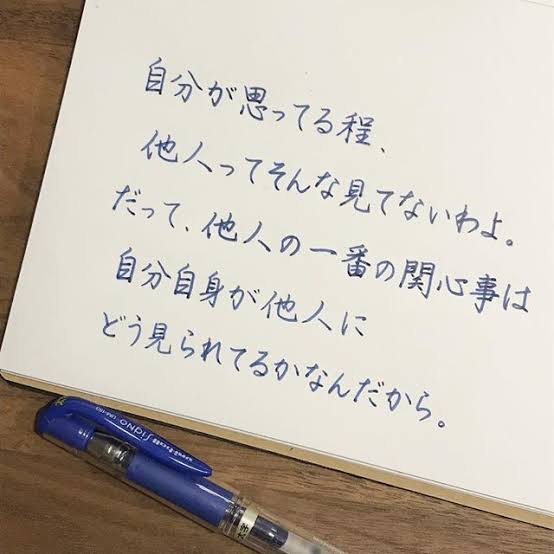 自分が思ってる程、
他人ってそんな見てないわよ。
だって、他人の一番の関心事は
自分自身が他人に
どう見られてるかなんだから。
SIGNO
太字